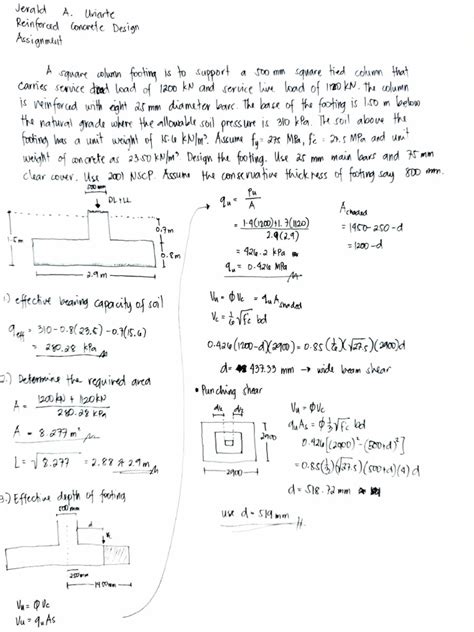 Jerald A. Uriarte
Reinforced Concrete Design
Assignment
A square column footing is to support a 500 mm square tied column that
carries service dead load of 1200 kN and service live load of 1120 kN. The column
is reinforced with eight 25 mm diameter bars. The base of the footing is 1.50 m below
the natural grade where the allowable soil pressure is 310 kPa. The soil above the
footing has a unit weight of 15.6 kN/m³. Assume fy = 275 MPa, f'c = 27.5 MPa and unit
weight of concrete as 23.50 kN/m³. Design the footing. Use 25 mm main bars and 75 mm
clear cover. Use 2001 NSCP. Assume the conservative thickness of footing say 800 mm.
500 mm
DL+LL
0.7m
1.5m
0.8m
2.9m
1.) effective bearing capacity of soil
qeff = 310-0.8(23.5)-0.7(15.6)
= 280.28 kPa
2.) Determine the required area
A = 1200 kN + 1120 kN / 280.28 kPa
A = 8.277 m²
L = √8.277 = 2.88 ≈ 2.9 m
3.) Effective depth of footing
500 mm
d
250mm
1450mm
Vu = ϕVc
Vu = quAs
• qu = Pu / A
= 1.4(1200)+1.7(1120) / 2.9(2.9)
= 426.2 kPa
qu = 0.426 MPa
Ashaded
= 1450-250-d
= 1200-d
Vu = ϕVc = quAshaded
Vc = 1/6 √f'c bd
0.426(1200-d)(2900) = 0.85(1/6)(√27.5)(2900)d
d = 437.33 mm → wide beam shear
• Punching shear
d/2 d/2
2900
2900
Vu = ϕVc
quAs = ϕ 1/3 √f'c bd
0.426[(2900)² - (500+d)²]
= 0.85(1/3)(√27.5)(500+d)(4)d
d = 518.72 mm
use d = 519 mm